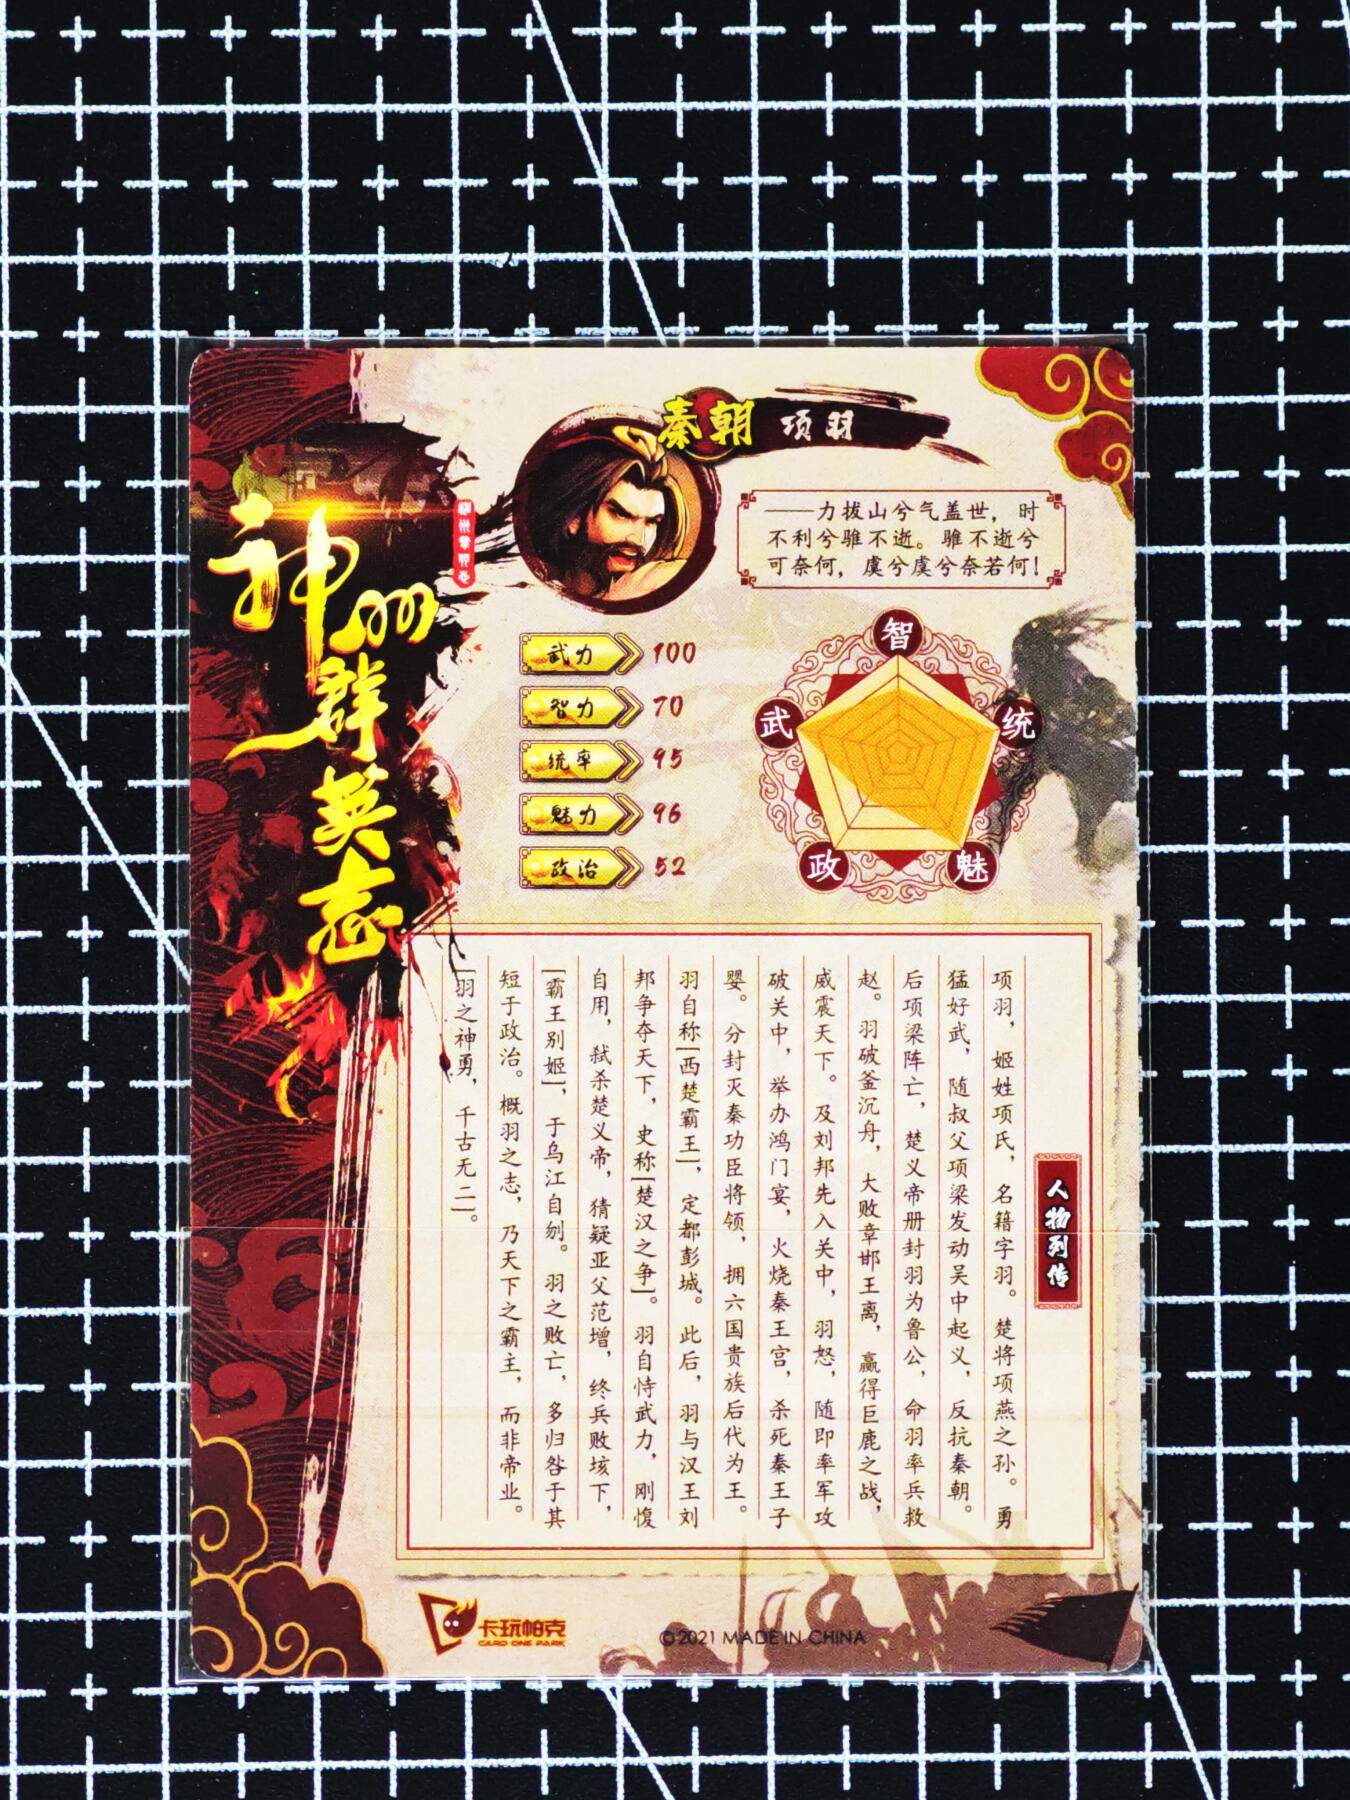 神州群英志
秦朝 项羽
——力拔山兮气盖世，时
不利兮骓不逝。骓不逝兮
可奈何，虞兮虞兮奈若何！
武力 100
智力 70
统率 95
魅力 96
政治 52
智
武
统
政
魅
人物列传
项羽，姬姓项氏，名籍字羽。楚将项燕之孙。勇
猛好武，随叔父项梁发动吴中起义，反抗秦朝。
后项梁阵亡，楚义帝册封羽为鲁公，命羽率兵救
赵。羽破釜沉舟，大败章邯王离，赢得巨鹿之战，
威震天下。及刘邦先入关中，羽怒，随即率军攻
破关中，举办鸿门宴，火烧秦王宫，杀死秦王子
婴。分封灭秦功臣将领，拥六国贵族后代为王。
羽自称[西楚霸王]，定都彭城。此后，羽与汉王刘
邦争夺天下，史称[楚汉之争]。羽自恃武力，刚愎
自用，弑杀楚义帝，猜疑亚父范增，终兵败垓下，
[霸王别姬]，于乌江自刎。羽之败亡，多归咎于其
短于政治。概羽之志，乃天下之霸主，而非帝业。
[羽之神勇，千古无二]。
卡玩帕克
CARD ONE PARK
©2021 MADE IN CHINA